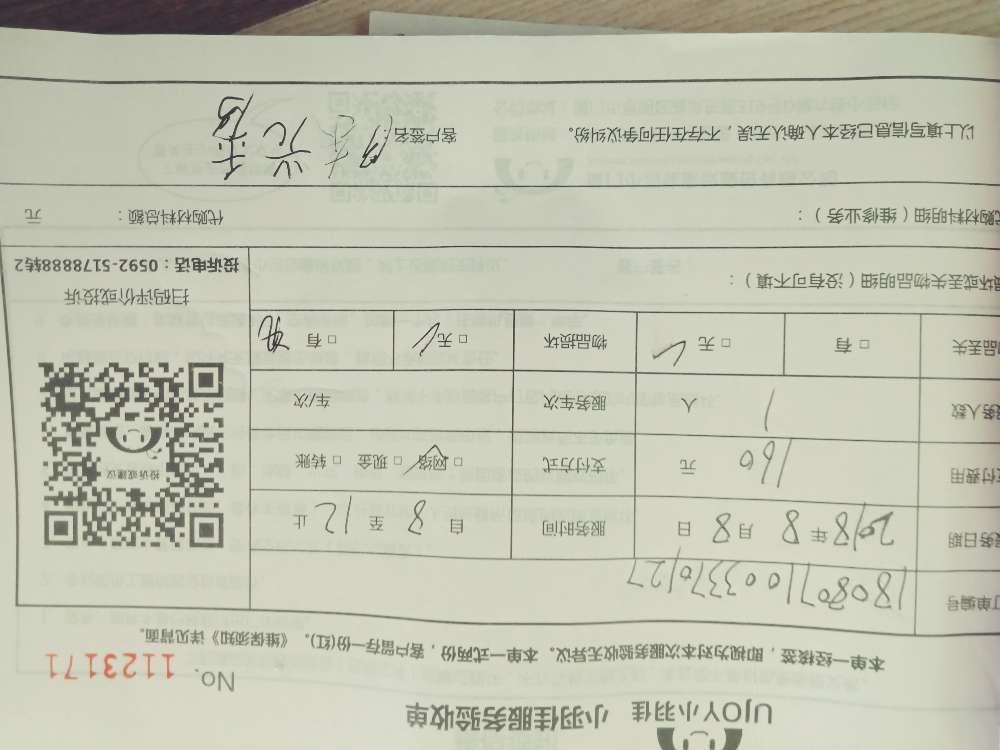 UjOYA小羽佳 小羽佳服务验收单
No. 1123171
本单一经接签，即视为对本次服务验收无异议。本单一式两份，客户留存一份(红)。《维保须知》详见背面。
订单编号 1808071003370127
服务日期 2018年8月8日 服务时间 自8至12止
支付费用 160元 支付方式 □网络 □现金 □转账
服务人数 1人 服务车次 车/次
物品丢失 □有 □无 物品损坏 □无 □有
投诉或建议
扫码评价或投诉
投诉电话：0592-5178888转2
损坏或丢失物品明细（没有可不填）：
代购材料明细（维修业务）： 代购材料总额： 元
以上填写信息已经本人确认无误，不存在任何争议纠纷。 客户签名：